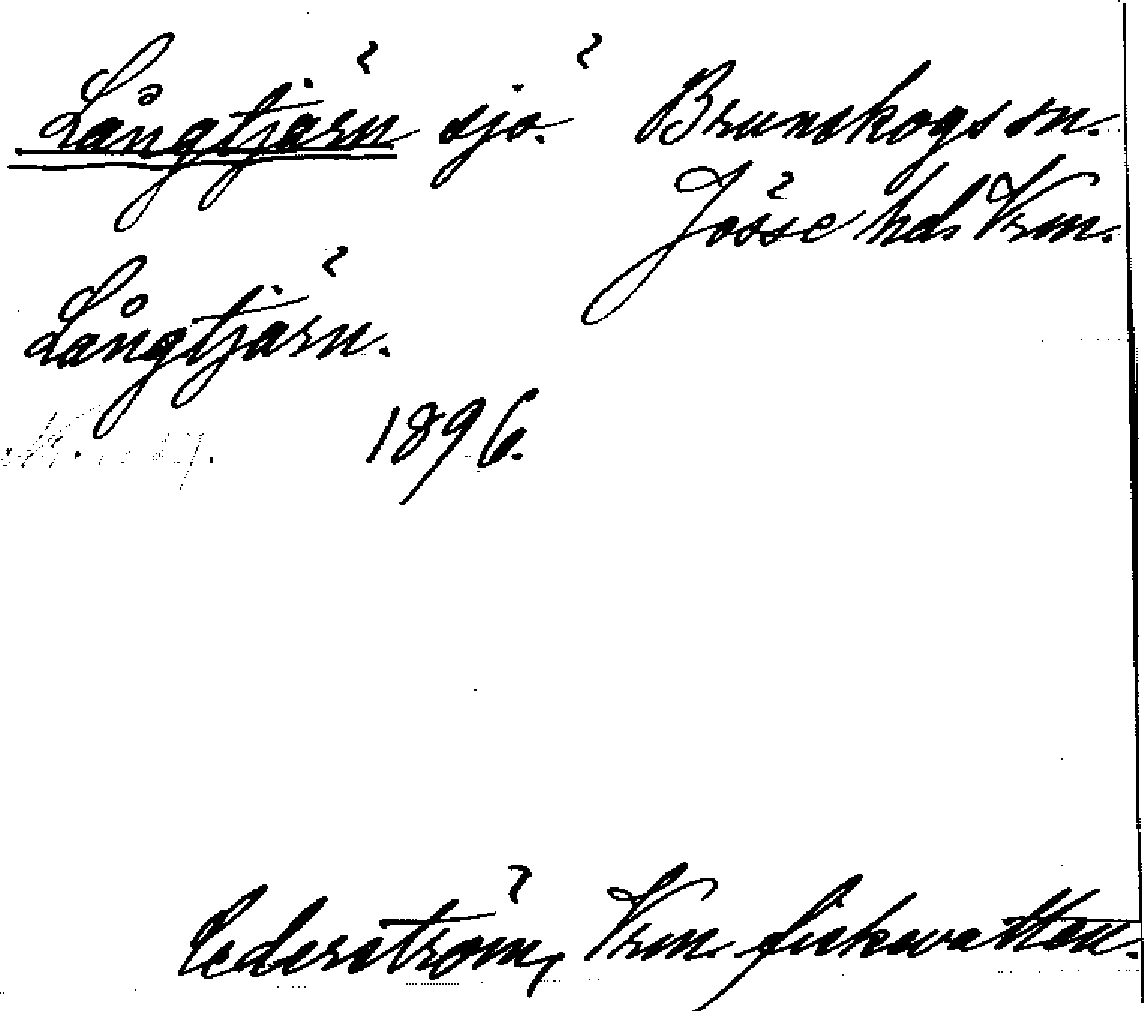 Långtjärn sjö. Brunskogs sn.
Jösse hd. Vrm.
Långtjärn.
1896.
Cederström, Vrm. fiskvatten.